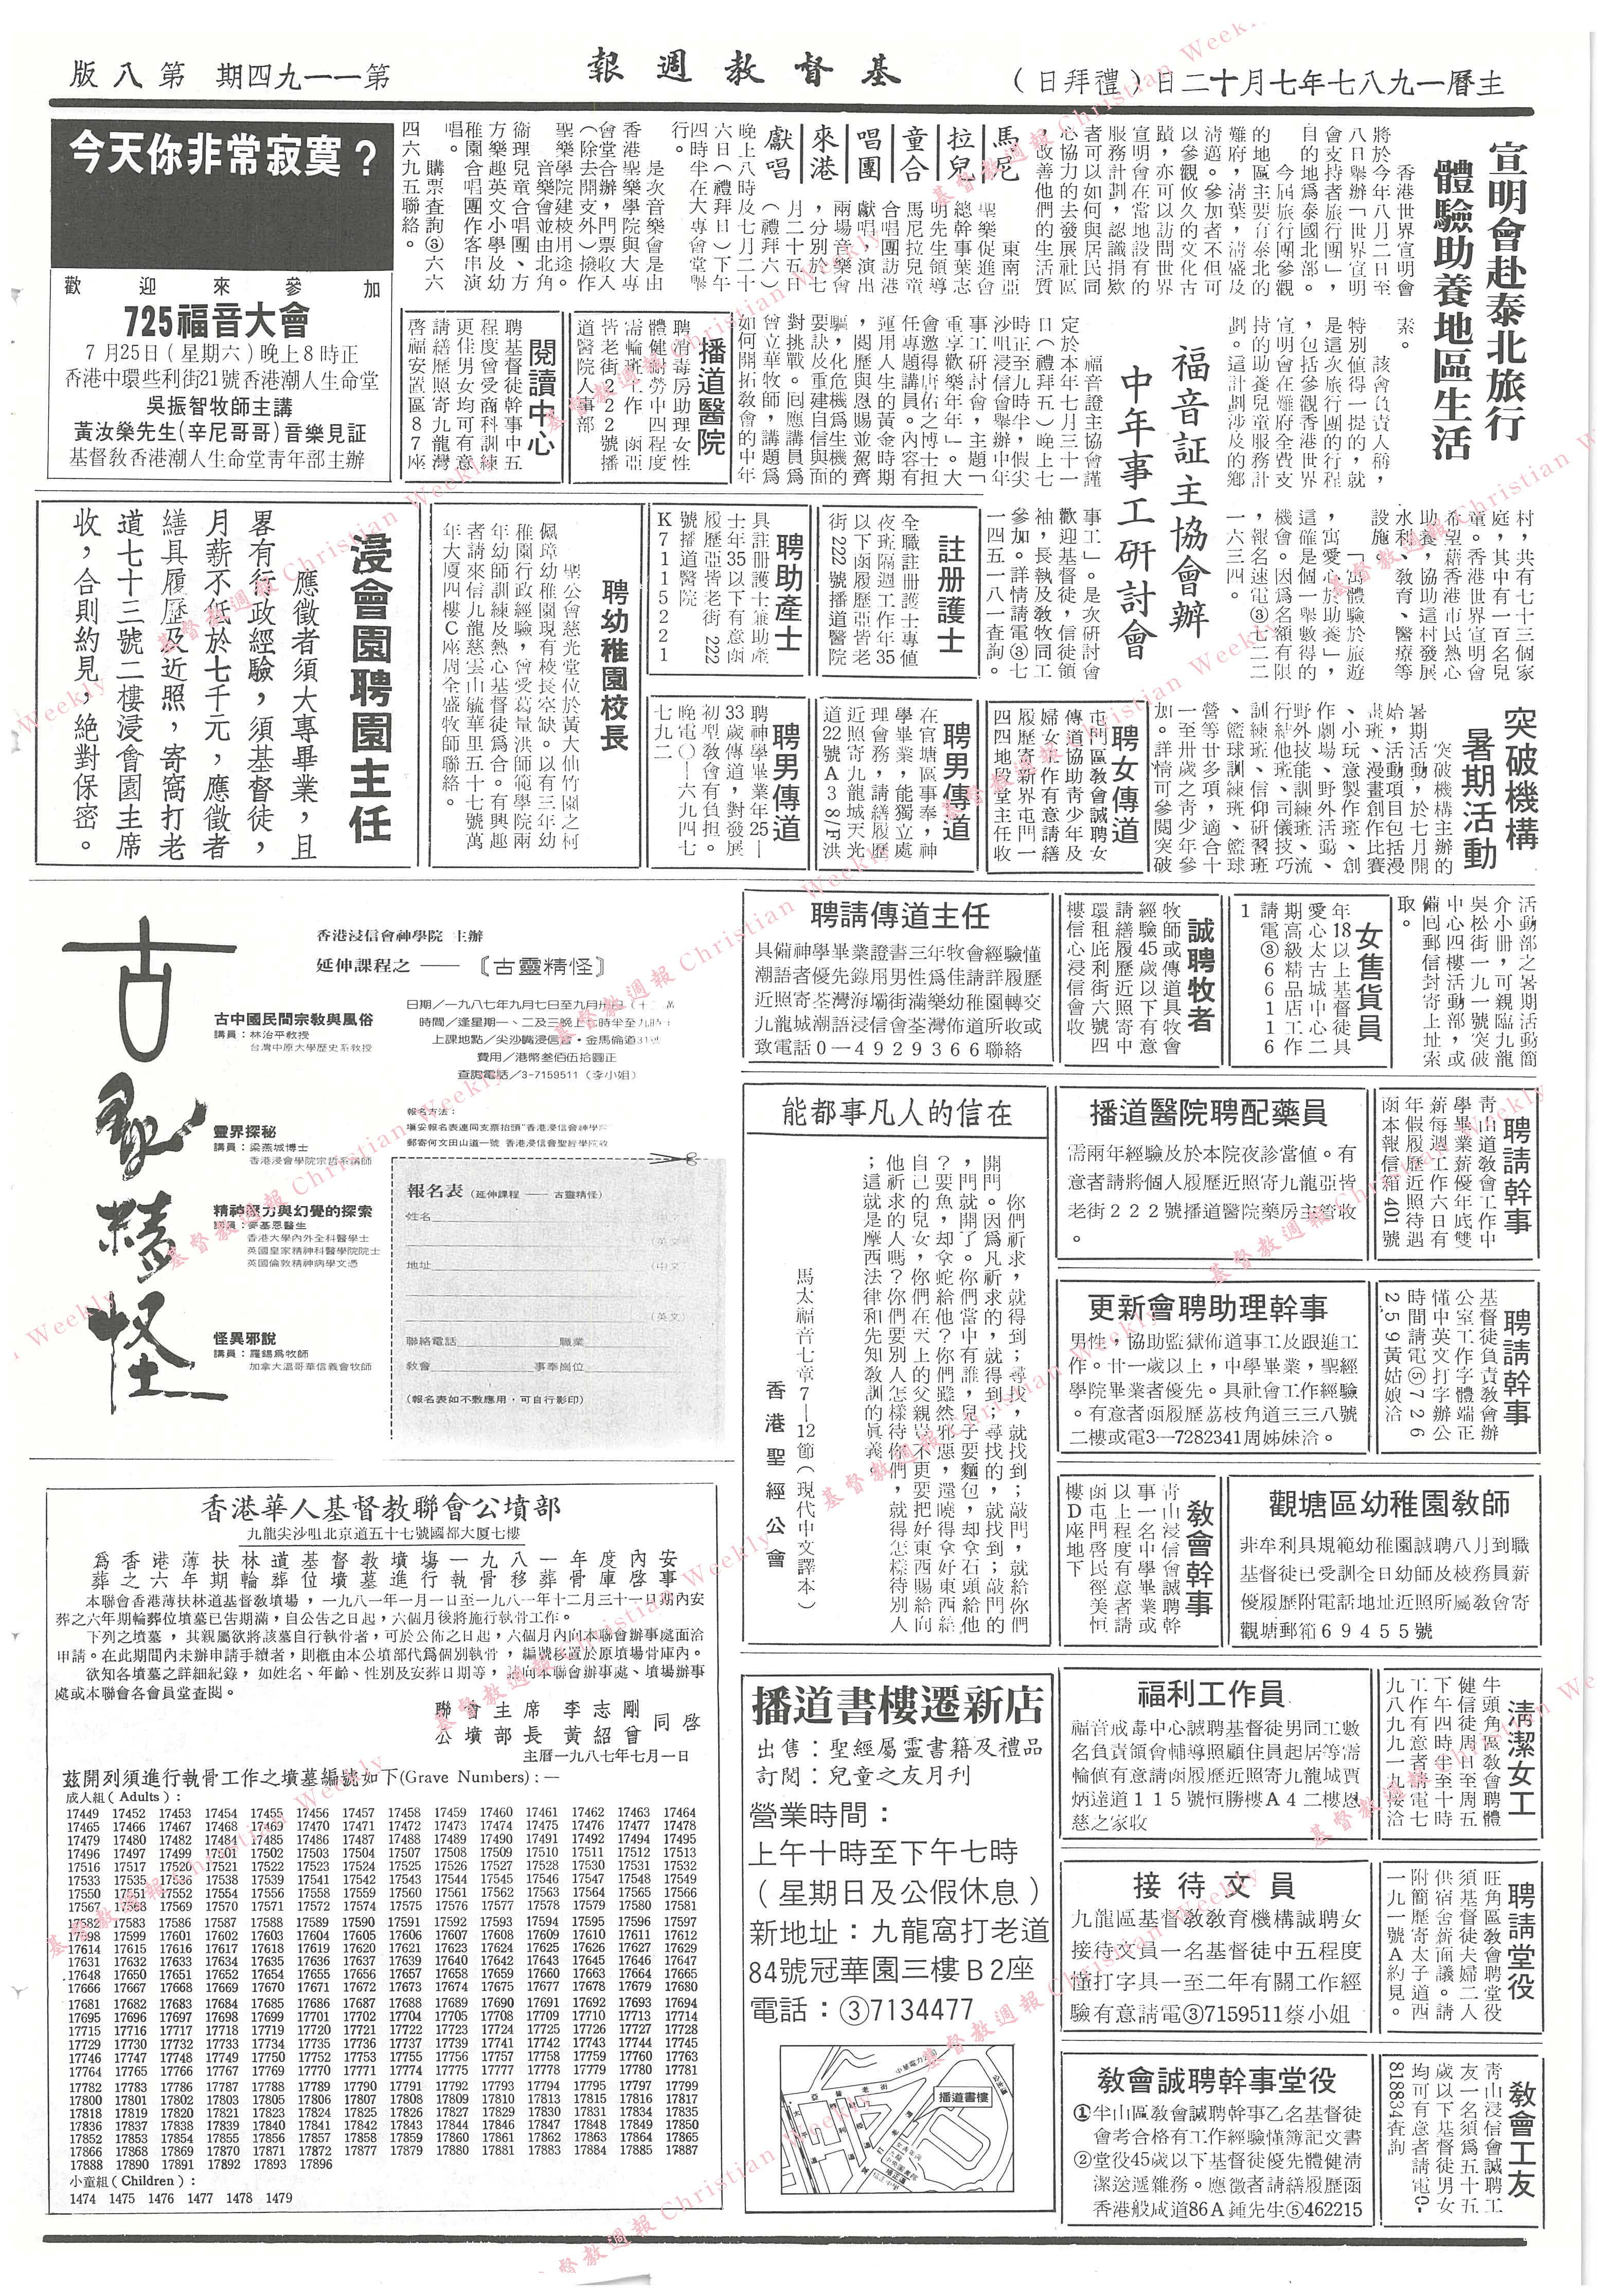 主曆一九八七年七月十二日（禮拜日）
基督教週報
第一一九四期 第八版
宣明會赴泰北旅行
體驗助養地區生活
香港世界宣明會
將於今年八月二日至
八日舉辦「世界宣明
會支持者旅行團」，
目的地爲泰國北部。
今屆旅行團參觀
的地區主要有泰北的
難府，清葉，清盛及
清邁。參加者不但可
以參觀悠久的文化古
蹟，亦可以訪問世界
宣明會在當地設有的
服務計劃，認識捐款
者可以如何與居民同
心協力的去發展社區
，改善他們的生活質
素。
該會負責人稱，
特別值得一提的，就
是這次旅行團的行程
，包括參觀香港世界
宣明會在難府全費支
持的助養兒童服務計
劃。這計劃涉及的鄉
村，共有七十三個家
庭，其中有一百名兒
童。香港世界宣明會
希望藉香港市民熱心
助養，協助這村發展
水利、教育、醫療等
設施。
「寓體驗於旅遊
，寓愛心於助養」，
這確是個一舉數得的
機會。因爲名額有限
，報名速電③七二二
一六三四。
馬尼拉兒童合唱團來港獻唱
東南亞
聖樂促進會
總幹事葉志
明先生領導
馬尼拉兒童
合唱團訪港
獻唱，演出
兩場音樂會
，分別於七
月二十五日
（禮拜六）
晚上八時及七月二十
六日（禮拜日）下午
四時半在大專會堂舉
行。
是次音樂會是由
香港聖樂學院與大專
會堂合辦，門票收入
（除去開支外）撥作
聖樂學院建校用途。
音樂會並由北角
衞理兒童合唱團、方
方樂趣英文小學及幼
稚園合唱團作客串演
唱。
購票查詢③六六
四六九五聯絡。
福音証主協會辦
中年事工研討會
福音證主協會謹
定於本年七月三十一
日（禮拜五）晚上七
時正至九時半，假尖
沙咀浸信會舉辦中年
事工研討會，主題「
重享歡樂年年」。大
會邀得唐佑之博士担
任專題講員。內容有
運用人生的黃金時期
，閱歷與恩賜並駕齊
驅，化危機爲生機的
要訣及重建自信與面
對挑戰。囘應講員爲
曾立華牧師，講題爲
如何開拓教會的中年
事工」。是次研討會
歡迎基督徒，信徒領
袖，長執及教牧同工
參加。詳情請電③七
一四五一八一查詢。
今天你非常寂寞？
歡迎來參加
725福音大會
7月25日（星期六）晚上8時正
香港中環些利街21號香港潮人生命堂
吳振智牧師主講
黃汝榮先生（辛尼哥哥）音樂見証
基督敎香港潮人生命堂靑年部主辦
播道醫院
聘消毒房助理女性
體健耐勞中四程度
需輪班工作 函亞
皆老街２２２號播
道醫院人事部
閱讀中心
聘基督徒幹事中五
程度會受商科訓練
更佳男女均可有意
請繕歷照寄九龍灣
啓福安置區８７座
註册護士
全職註册護士專値
夜班隔週工作年35
以下函履歷亞皆老
街222號播道醫院
聘助產士
具註册護士兼助產
士年35以下有意函
履歷亞皆老街 222
號播道醫院
K７１１５２２１
聘幼稚園校長
聖公會慈光堂位於黃大仙竹園之柯
佩璋幼稚園現有校長空缺。以有三年幼
稚園行政經驗，曾受葛量洪師範學院兩
年幼師訓練及熱心基督徒爲合。有興趣
者請來信九龍慈雲山毓華里五十七號萬
年大廈四樓Ｃ座周全盛牧師聯絡。
浸會園聘園主任
應徵者須大專畢業，且
畧有行政經驗，須基督徒，
月薪不低於七千元，應徵者
繕具履歷及近照，寄窩打老
道七十三號二樓浸會園主席
收，合則約見，絕對保密。
突破機構
暑期活動
突破機構主辦的
暑期活動，於七月開
始，活動項目包括漫
畫班、漫畫創作比賽
、小玩意製作班、創
作劇場、野外活動、
野外技能訓練班、流
行結他班、司儀技巧
訓練班、信仰研習班
、籃球訓練班、籃球
營等廿多項，適合十
一至卅歲之青少年參
加。詳情可參閱突破
活動部之暑期活動簡
介小册，可親臨九龍
吳松街一九一號突破
中心四樓活動部，或
備囘郵信封寄上址索
取。
聘女傳道
屯門區敎會誠聘女
傳道協助靑少年及
婦女工作有意請繕
履歷寄新界屯門一
四四地段堂主任收
聘男傳道
在官塘區事奉，神
學畢業，能獨立處
理會務，請繕履歷
近照寄九龍城天光
道22號Ａ３８/Ｆ洪
聘男傳道
聘神學畢業年25—
33歲傳道，對發展
初型敎會有負担。
晚電〇—六九四七
七九二
女售貨員
年18以上基督徒具
愛心太古城中心二
期高級精品店工作
請電③６６１１６
1
誠聘牧者
牧師或傳道具牧會
經驗45歲以下有意
請繕履歷近照寄中
環租庇利街六號四
樓信心浸信會收
聘請傳道主任
具備神學畢業證書三年牧會經驗懂
潮語者優先錄用男性爲佳請詳履歷
近照寄荃灣海壩街滿樂幼稚園轉交
九龍城潮語浸信會荃灣佈道所收或
致電話０—４９２９３６６聯絡
古靈精怪
香港浸信會神學院 主辦
延伸課程之 ——〔古靈精怪〕
古中國民間宗敎與風俗
講員：林治平敎授
台灣中原大學歷史系敎授
靈界探秘
講員：梁燕城博士
香港浸會學院宗哲系講師
精神壓力與幻覺的探索
講員：麥基恩醫生
香港大學內外全科醫學士
英國皇家精神科醫學院院士
英國倫敦精神病學文憑
怪異邪說
講員：羅錫爲牧師
加拿大溫哥華信義會牧師
時間／逢星期一、二及三晚上七時半至九時
上課地點／尖沙嘴浸信會‧金馬倫道31號
費用／港幣叁佰伍拾圓正
查詢電話／3-7159511（李小姐）
報名方法：
填妥報名表連同支票抬頭"香港浸信會神學院
郵寄何文田山道一號 香港浸信會聖經學院收
報名表（延伸課程 —— 古靈精怪）
姓名
（英文）
地址
（中文）
（英文）
聯絡電話 職業
敎會 事奉崗位
（報名表如不敷應用，可自行影印）
在信的人凡事都能
你們祈求，就得到；尋找，就找到；敲門，就給你們
開門。因爲凡祈求的，就得到；尋找的，就找到；敲門的
，門就開了。你們當中有誰，兒子要麵包，却拿石頭給他
？要魚，却拿蛇給他？你們雖然邪惡，還曉得拿好東西給
自己的兒女，你們在天上的父親豈不更要把好東西賜給向
他祈求的人嗎？你們要別人怎樣待你們，就得怎樣待別人
；這就是摩西法律和先知敎訓的眞義。
馬太福音七章7—12節（現代中文譯本）
香港聖經公會
播道醫院聘配藥員
需兩年經驗及於本院夜診當值。有
意者請將個人履歷近照寄九龍亞皆
老街２２２號播道醫院藥房主管收
。
聘請幹事
靑山道敎會工作中
學畢業薪優年底雙
薪每週工作六日有
年假履歷近照待遇
函本報信箱 401號
更新會聘助理幹事
男性，協助監獄佈道事工及跟進工
作。廿一歲以上，中學畢業，聖經
學院畢業者優先。具社會工作經驗
。有意者函履歷荔枝角道三三八號
二樓或電3—7282341周姊妹洽。
聘請幹事
基督徒負責敎會辦
公室工作字體端正
懂中英文打字辦公
時間請電⑤７２６
２５９黃姑娘洽
敎會幹事
靑山浸信會誠聘幹
事一名中學畢業或
以上程度有意者請
函屯門啓民徑美恒
樓Ｄ座地下
觀塘區幼稚園敎師
非牟利具規範幼稚園誠聘八月到職
基督徒已受訓全日幼師及校務員薪
優履歷附電話地址近照所屬敎會寄
觀塘郵箱６９４５５號
福利工作員
福音戒毒中心誠聘基督徒男同工數
名負責領會輔導照顧住員起居等需
輪值有意請函履歷近照寄九龍城賈
炳達道１１５號恒勝樓Ａ４二樓恩
慈之家收
淸潔女工
牛頭角區敎會聘體
健信徒周日至周五
下午四時半至十時
工作有意者請電七
九八九九一九接洽
接待文員
九龍區基督教敎育機構誠聘女
接待文員一名基督徒中五程度
懂打字具一至二年有關工作經
驗有意請電③7159511蔡小姐
聘請堂役
旺角區敎會聘堂役
須基督徒夫婦二人
供宿舍薪面議。請
附簡歷寄太子道西
一九一號Ａ約見。
敎會誠聘幹事堂役
①半山區敎會誠聘幹事乙名基督徒
會考合格有工作經驗懂簿記文書
②堂役45歲以下基督徒優先體健淸
潔送遞雜務。應徵者請繕履歷函
香港般咸道86Ａ鍾先生⑤462215
敎會工友
靑山浸信會誠聘工
友一名須爲五十五
歲以下基督徒男女
均可有意者請電0-
818834查詢
播道書樓遷新店
出售：聖經屬靈書籍及禮品
訂閱：兒童之友月刊
營業時間：
上午十時至下午七時
（星期日及公假休息）
新地址：九龍窩打老道
84號冠華園三樓Ｂ2座
電話：③7134477
播道書樓
香港華人基督教聯會公墳部
九龍尖沙咀北京道五十七號國都大廈七樓
爲香港薄扶林道基督教墳塲一九八一年度內安
葬之六年期輪葬位墳墓進行執骨移葬骨庫啓事
本聯會香港薄扶林道基督敎墳場，一九八一年一月一日至一九八一年十二月三十一日期內安
葬之六年期輪葬位墳墓已告期滿，自公告之日起，六個月後將施行執骨工作。
下列之墳墓，其親屬欲將該墓自行執骨者，可於公佈之日起，六個月內向本聯會辦事處面洽
申請。在此期間內未辦申請手續者，則槪由本公墳部代爲個別執骨，編號移置於原墳場骨庫內。
欲知各墳墓之詳細紀錄，如姓名、年齡、性別及安葬日期等，請向本聯會辦事處、墳場辦事
處或本聯會各會員堂查閱。
聯會主席 李志剛
公墳部長 黃紹曾 同啓
主曆一九八七年七月一日
茲開列須進行執骨工作之墳墓編號如下(Grave Numbers)：—
成人組（Adults）：
17449 17452 17453 17454 17455 17456 17457 17458 17459 17460 17461 17462 17463 17464
17465 17466 17467 17468 17469 17470 17471 17472 17473 17474 17475 17476 17477 17478
17479 17480 17482 17484 17485 17486 17487 17488 17489 17490 17491 17492 17494 17495
17496 17497 17499 17501 17502 17503 17504 17507 17508 17509 17510 17511 17512 17513
17516 17517 17520 17521 17522 17523 17524 17525 17526 17527 17528 17530 17531 17532
17533 17535 17536 17538 17539 17541 17542 17543 17544 17545 17546 17547 17548 17549
17550 17551 17552 17554 17556 17557 17558 17559 17560 17561 17562 17563 17564 17565 17566
17567 17568 17569 17570 17571 17572 17574 17575 17576 17577 17578 17579 17580 17581
17582 17583 17586 17587 17588 17589 17590 17591 17592 17593 17594 17595 17596 17597
17598 17599 17601 17602 17603 17604 17605 17606 17607 17608 17609 17610 17611 17612
17614 17615 17616 17617 17618 17619 17620 17621 17623 17624 17625 17626 17627 17629
17631 17632 17633 17634 17635 17636 17637 17639 17640 17642 17643 17645 17646 17647
17648 17650 17651 17652 17654 17655 17656 17657 17658 17659 17660 17663 17664 17665
17666 17667 17668 17669 17670 17671 17672 17673 17674 17675 17677 17678 17679 17680
17681 17682 17683 17684 17685 17686 17687 17688 17689 17690 17691 17692 17693 17694
17695 17696 17697 17698 17699 17701 17702 17704 17705 17708 17709 17710 17713 17714
17715 17716 17717 17718 17719 17720 17721 17722 17723 17724 17725 17726 17727 17728
17729 17730 17732 17733 17734 17735 17736 17737 17739 17741 17742 17743 17744 17745
17746 17747 17748 17749 17750 17752 17753 17755 17756 17757 17758 17759 17760 17763
17764 17765 17766 17769 17770 17771 17773 17774 17775 17777 17778 17779 17780 17781
17782 17783 17786 17787 17788 17789 17790 17791 17792 17793 17794 17795 17797 17799
17800 17801 17802 17803 17805 17806 17807 17808 17809 17812 17813 17815 17816 17817
17818 17819 17820 17821 17823 17824 17825 17826 17827 17829 17830 17831 17834 17835
17836 17837 17838 17839 17840 17841 17842 17843 17844 17846 17847 17848 17849 17850
17852 17853 17854 17855 17856 17857 17858 17859 17860 17861 17862 17863 17864 17865
17866 17868 17869 17870 17871 17872 17877 17879 17880 17881 17882 17883 17884 17885 17887
17888 17890 17891 17892 17893 17896
小童組（Children）：
1474 1475 1476 1477 1478 1479
基督教週報 Christian Weekly